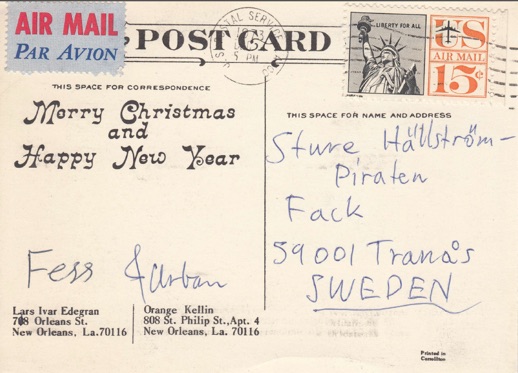 AIR MAIL
PAR AVION
POST CARD
POSTAL SERVICE
PM
LIBERTY FOR ALL
US
AIR MAIL
15¢
THIS SPACE FOR CORRESPONDENCE
Merry Christmas
and
Happy New Year
THIS SPACE FOR NAME AND ADDRESS
Sture Hällström-
Piraten
Fack
59001 Tranås
SWEDEN
Lars Ivar Edegran
Orleans St.
New Orleans, La. 70116
Orange Kellin
808 St. Philip St., Apt. 4
New Orleans, La. 70116
Printed in